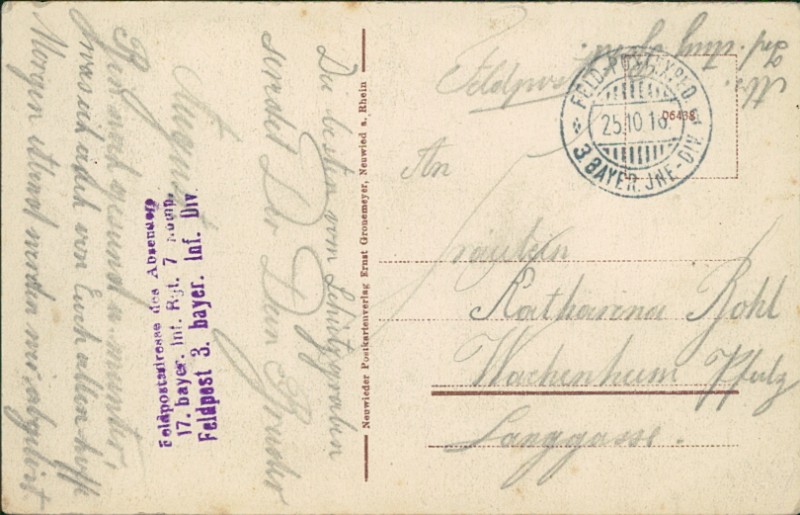 Die besten vom Schützgraben
sendet Dir Dein Bruder
August
Bin noch gesund u. munter
was ich auch von Euch allen hoffe
Morgen Abend werden wir abgelöst
Feldpostadresse des Absenders
17. bayer. Inf. Rgt. 7 Komp.
Feldpost 3. bayer. Inf. Div.
Neuwieder Postkartenverlag Ernst Gronemeyer, Neuwied a. Rhein
Feldpost
FELD-POSTEXPED
25.10.16.
3. BAYER. JNF.-DIV.
06488
An
Fräulein
Katharina Bohl
Wachenheim Pfalz
Langgasse.